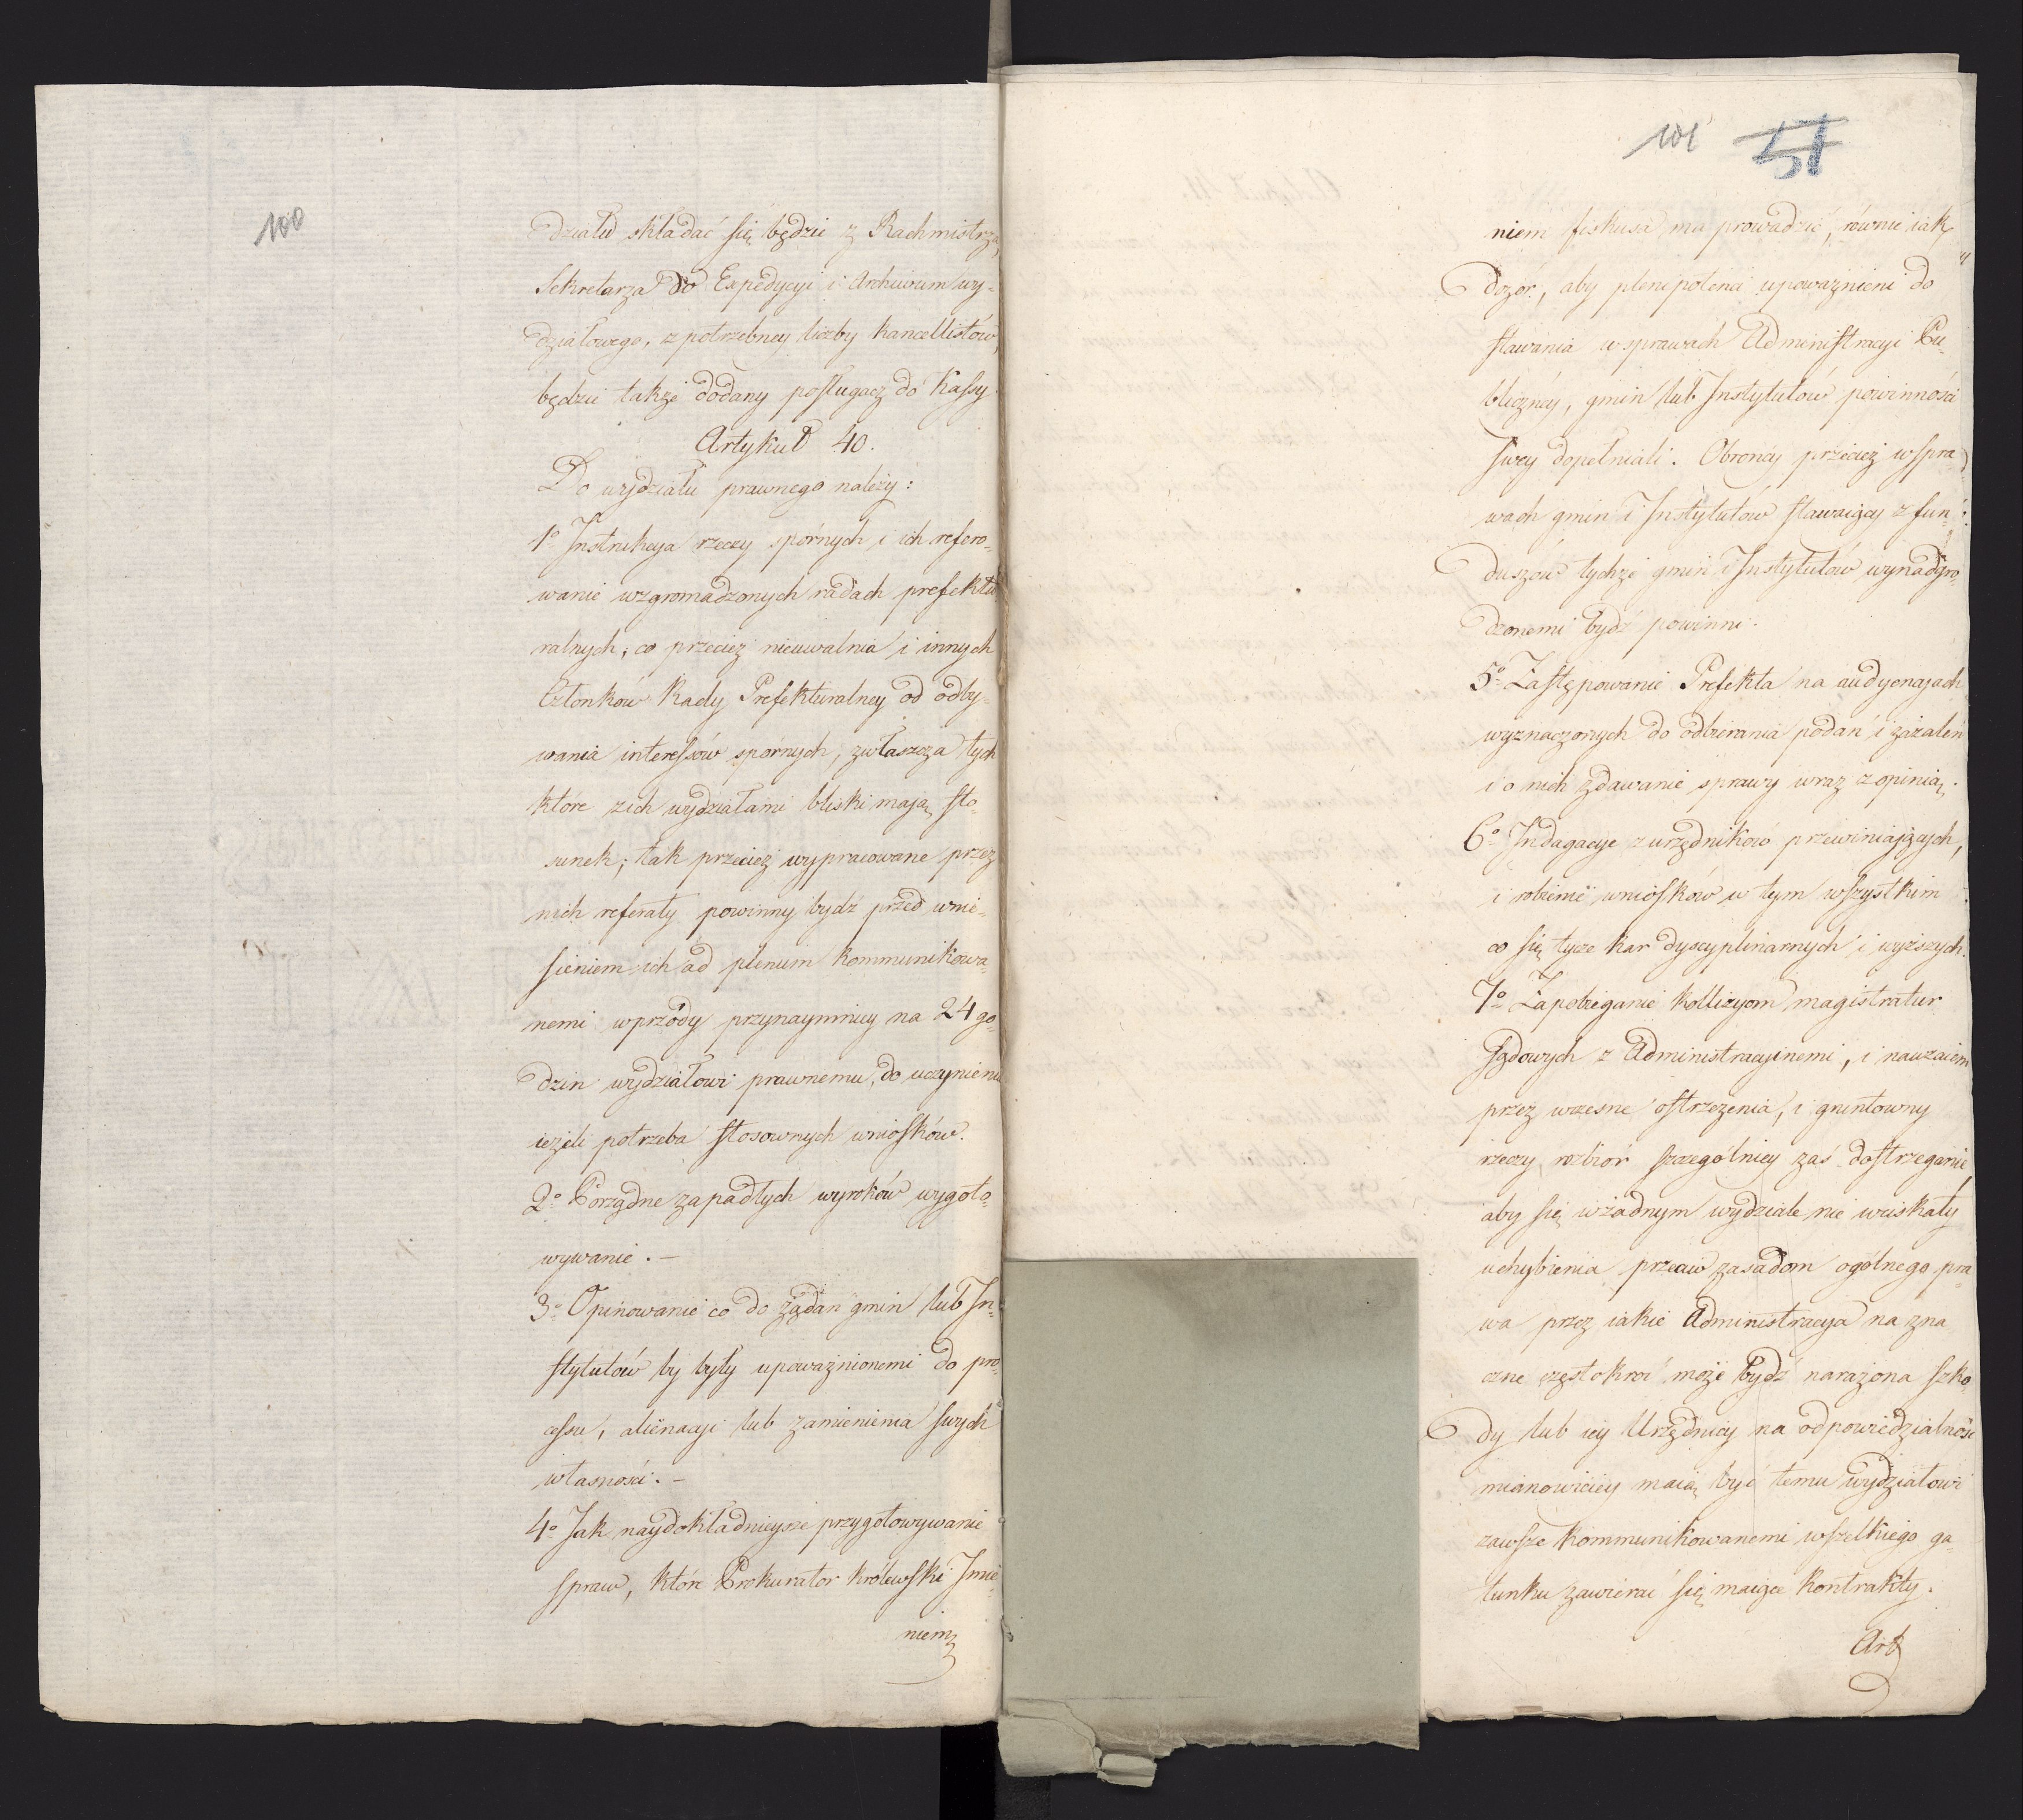 100
działu składać się będzie z Rachmistrza,
Sekretarza do Expedycyi i Archiwum wy-
działowego, z potrzebney liczby kancellistów,
będzie także dodany posługacz do Kassy.
Artykuł 40.
Do wydziału prawnego należy:
1o Instrukcya rzeczy spórnych i ich refero-
wanie wzgromadzonych radach prefektu
ralnych, co przecież nieuwalnia i innych
Członków Rady Prefekturalney od odby-
wania interessów spornych, zwłaszcza tych
które zich wydziałami bliski mają sto-
sunek; tak przecież wypracowane przez
nich referaty powinny bydź przed wnie-
sieniem ich ad plenum kommunikowa-
nemi wprzódy przynaymniey na 24 go-
dzin wydziałowi prawnemu, do uczynienia
ieżeli potrzeba stosownych wniosków.
2o Porządne zapadłych wyroków wygoto-
wywanie. –
3o Opiniowanie co do żądań gmin lub In-
stytutów by były upoważnionemi do pro-
cessu, alienacyi lub zamienienia swych
własności. –
4o Jak naydokładnieysze przygotowywanie
spraw, które Prokurator królewski Imie-
niem
101 51
niem fiskusa ma prowadzić, równie iak
dozór, aby plenipotenci upoważnieni do
stawania w sprawach Administracyi Pu-
bliczney, gmin lub Instytutów powinności
swey dopełniali. Obrońcy przecież wspra-
wach gmin i Instytutów stawaiący z fun-
duszów tychże gmin i Instytutów wynadgro-
dzonemi bydź powinni.
5o Zastępowanie Prefekta na audyencyach
wyznaczonych do odbierania podań i zażaleń
i o nich zdawanie sprawy wraz z opinią.
6o Indagacye z urzędników przewiniających,
i robienie wniosków w tym wszystkim
co się tycze kar dyscyplinarnych i wyższych.
7o Zapobieganie kollizyom magistratur
sądowych z Administracyinemi, i nawzaiem
przez wczesne ostrzeżenia, i gruntowny
rzeczy rozbiór szczególniey zaś dostrzeganie
aby się wżadnym wydziale nie wciskały
uchybienia przeciw zasadom ogólnego pra-
wa przez iakie Administracya na zna
czne częstokroć może bydź narażona szko-
dy lub iey Urzędnicy na odpowiedzialność
mianowiciey maią być temu wydziałowi
zawsze kommunikowanemi wszelkiego ga-
tunku zawierać się maiące kontrakty.
Art